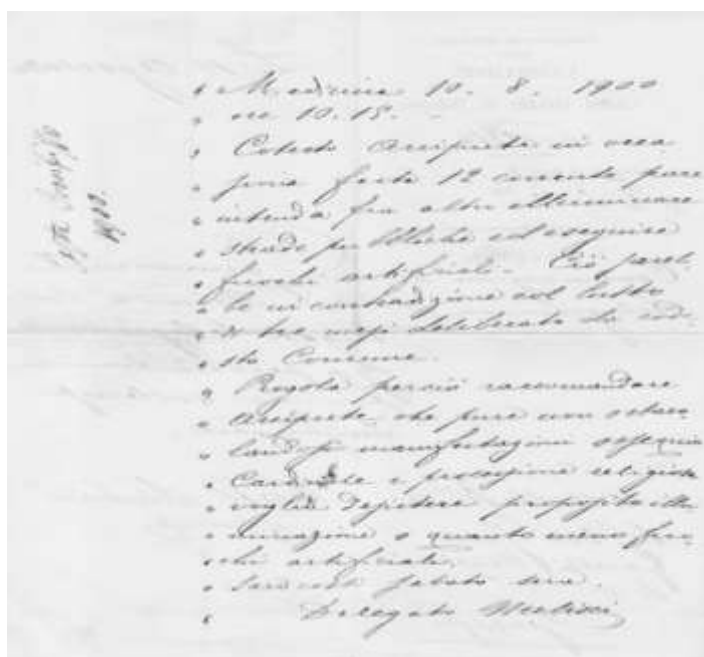 « 10. 8. 1900
« ore 10.15. -
« Cotesto Arciprete in occa
« feste 12 corrente pare
« intenda fra altro illuminare
« strade pubbliche ed eseguire
« fuochi artificiali. - Ciò pareb
« be in contraddizione col lutto
« di tre mesi deliberato da code
« sto Comune.
« Pregola perciò raccomandare
« Arciprete, che pure non ostaco
« landosi manifestazioni ossequio
« Cardinale e processione religiosa
« voglia propositi illu
« minazione o quanto meno fuo
« chi artificiali.
« sera.
« Delegato